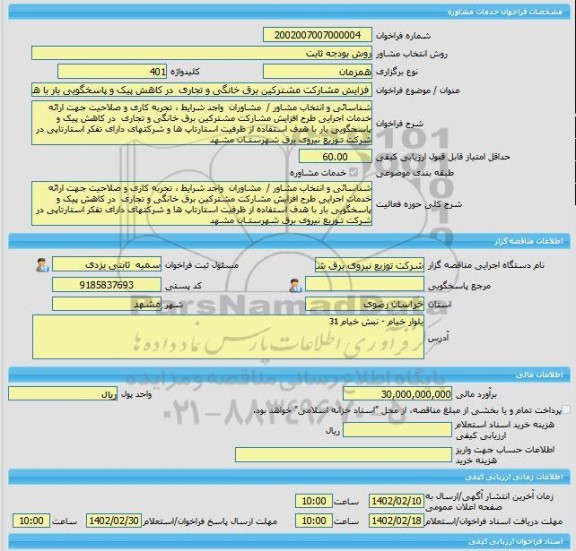 مشخصات فراخوان خدمات مشاوره
شماره فراخوان 2002007007000004
روش انتخاب مشاور روش بودجه ثابت
نوع برگزاری همزمان کلیدواژه 401
عنوان / موضوع فراخوان فزایش مشارکت مشترکین برق خانگی و تجاری در کاهش پیک و پاسخگویی بار با ه
شرح فراخوان
شناسائی و انتخاب مشاور / مشاوران واجد شرایط ، تجربه کاری و صلاحیت جهت ارائه
خدمات اجرایی طرح افزایش مشارکت مشترکین برق خانگی و تجاری در کاهش پیک و
پاسخگویی بار با هدف استفاده از ظرفیت استارتاپ ها و شرکتهای دارای تفکر استارتاپی در
شرکت توزیع نیروی برق شهرستان مشهد
حداقل امتیاز قابل قبول ارزیابی کیفی 60.00
طبقه بندی موضوعی خدمات مشاوره
شرح کلی حوزه فعالیت
شناسائی و انتخاب مشاور / مشاوران واجد شرایط ، تجربه کاری و صلاحیت جهت ارائه
خدمات اجرایی طرح افزایش مشارکت مشترکین برق خانگی و تجاری در کاهش پیک و
پاسخگویی بار با هدف استفاده از ظرفیت استارتاپ ها و شرکتهای دارای تفکر استارتاپی در
شرکت توزیع نیروی برق شهرستان مشهد
اطلاعات مناقصه گزار
نام دستگاه اجرایی مناقصه گزار شرکت توزیع نیروی برق مسئول ثبت فراخوان سمیه ثابتی یزدی
مرجع پاسخگویی کد پستی 9185837693
استان خراسان رضوی شهر مشهد
آدرس بلوار خیام - نبش خیام 31
ParsNamadData
گرفرآوری اطلاعات پارس نماد داده ها
اطلاعات مالی
پایگاه اطلاع رسانی مناقصه و مزایده
برآورد مالی 30,000,000,000 واحد پول ریال
۰۲۱-۸۸۳۴۹۶۷۰-۵
پرداخت تمام و یا بخشی از مبلغ مناقصه، از محل "اسناد خزانه اسلامی" خواهد بود.
هزینه خرید اسناد استعلام ارزیابی کیفی ریال
اطلاعات حساب جهت واریز هزینه خرید
اطلاعات زمانی ارزیابی کیفی
زمان آخرین انتشار آگهی/ارسال به صفحه اعلان عمومی 1402/02/10 ساعت 10:00
مهلت دریافت اسناد فراخوان/استعلام 1402/02/18 ساعت 10:00 مهلت ارسال پاسخ فراخوان/استعلام 1402/02/30 ساعت 10:00
اسناد فراخوان ارزیابی کیفی